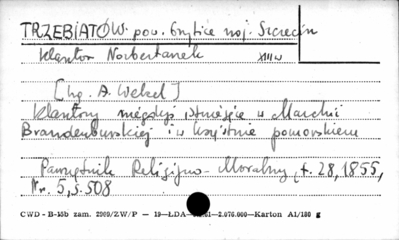 TRZEBIATÓW. pow. Gryfice woj. Szczecin
Klasztor Norbertanek XIII w
[ks. A. Weltzel]
Klasztory niegdyś istniejące w Marchii
Brandenburskiej i w Księstwie pomorskiem
Pamiętnik Religijno-Moralny, t. 28, 1855,
Nr. 5, s. 508
CWD - B-15b zam. 2909/ZW/P — 19—ŁDA— -61—2.070.000—Karton A1/180 g